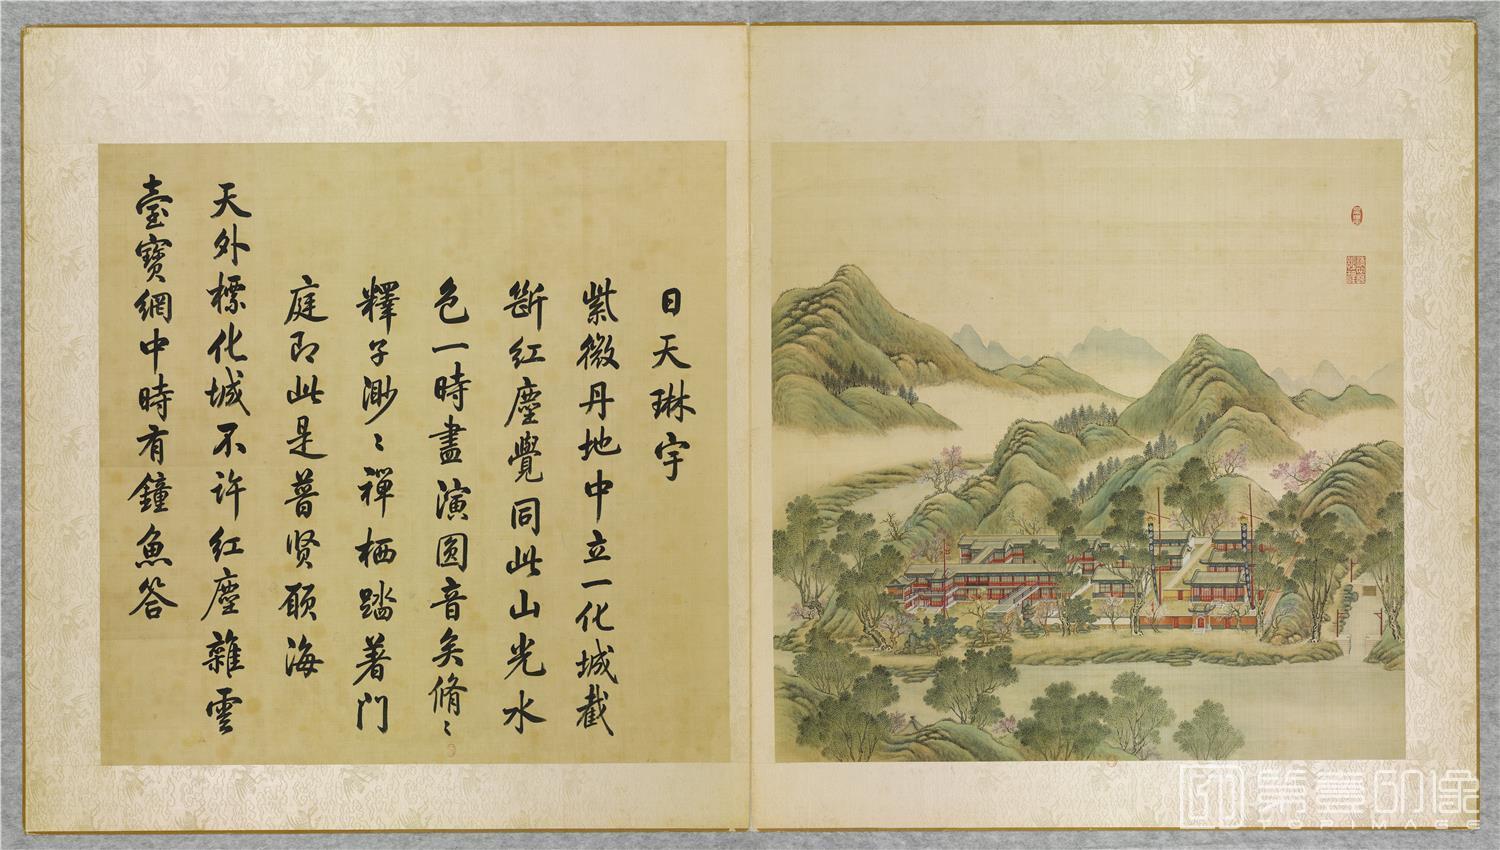 日天琳宇
紫微丹地中立一化城截
斷紅塵覺同此山光水
色一時盡演圓音矣脩〻
釋子渺〻禪栖踏著門
庭即此是普賢願海
天外標化城不許紅塵雜雲
臺寶網中時有鐘魚答
第壹印象
TOPIMAGE